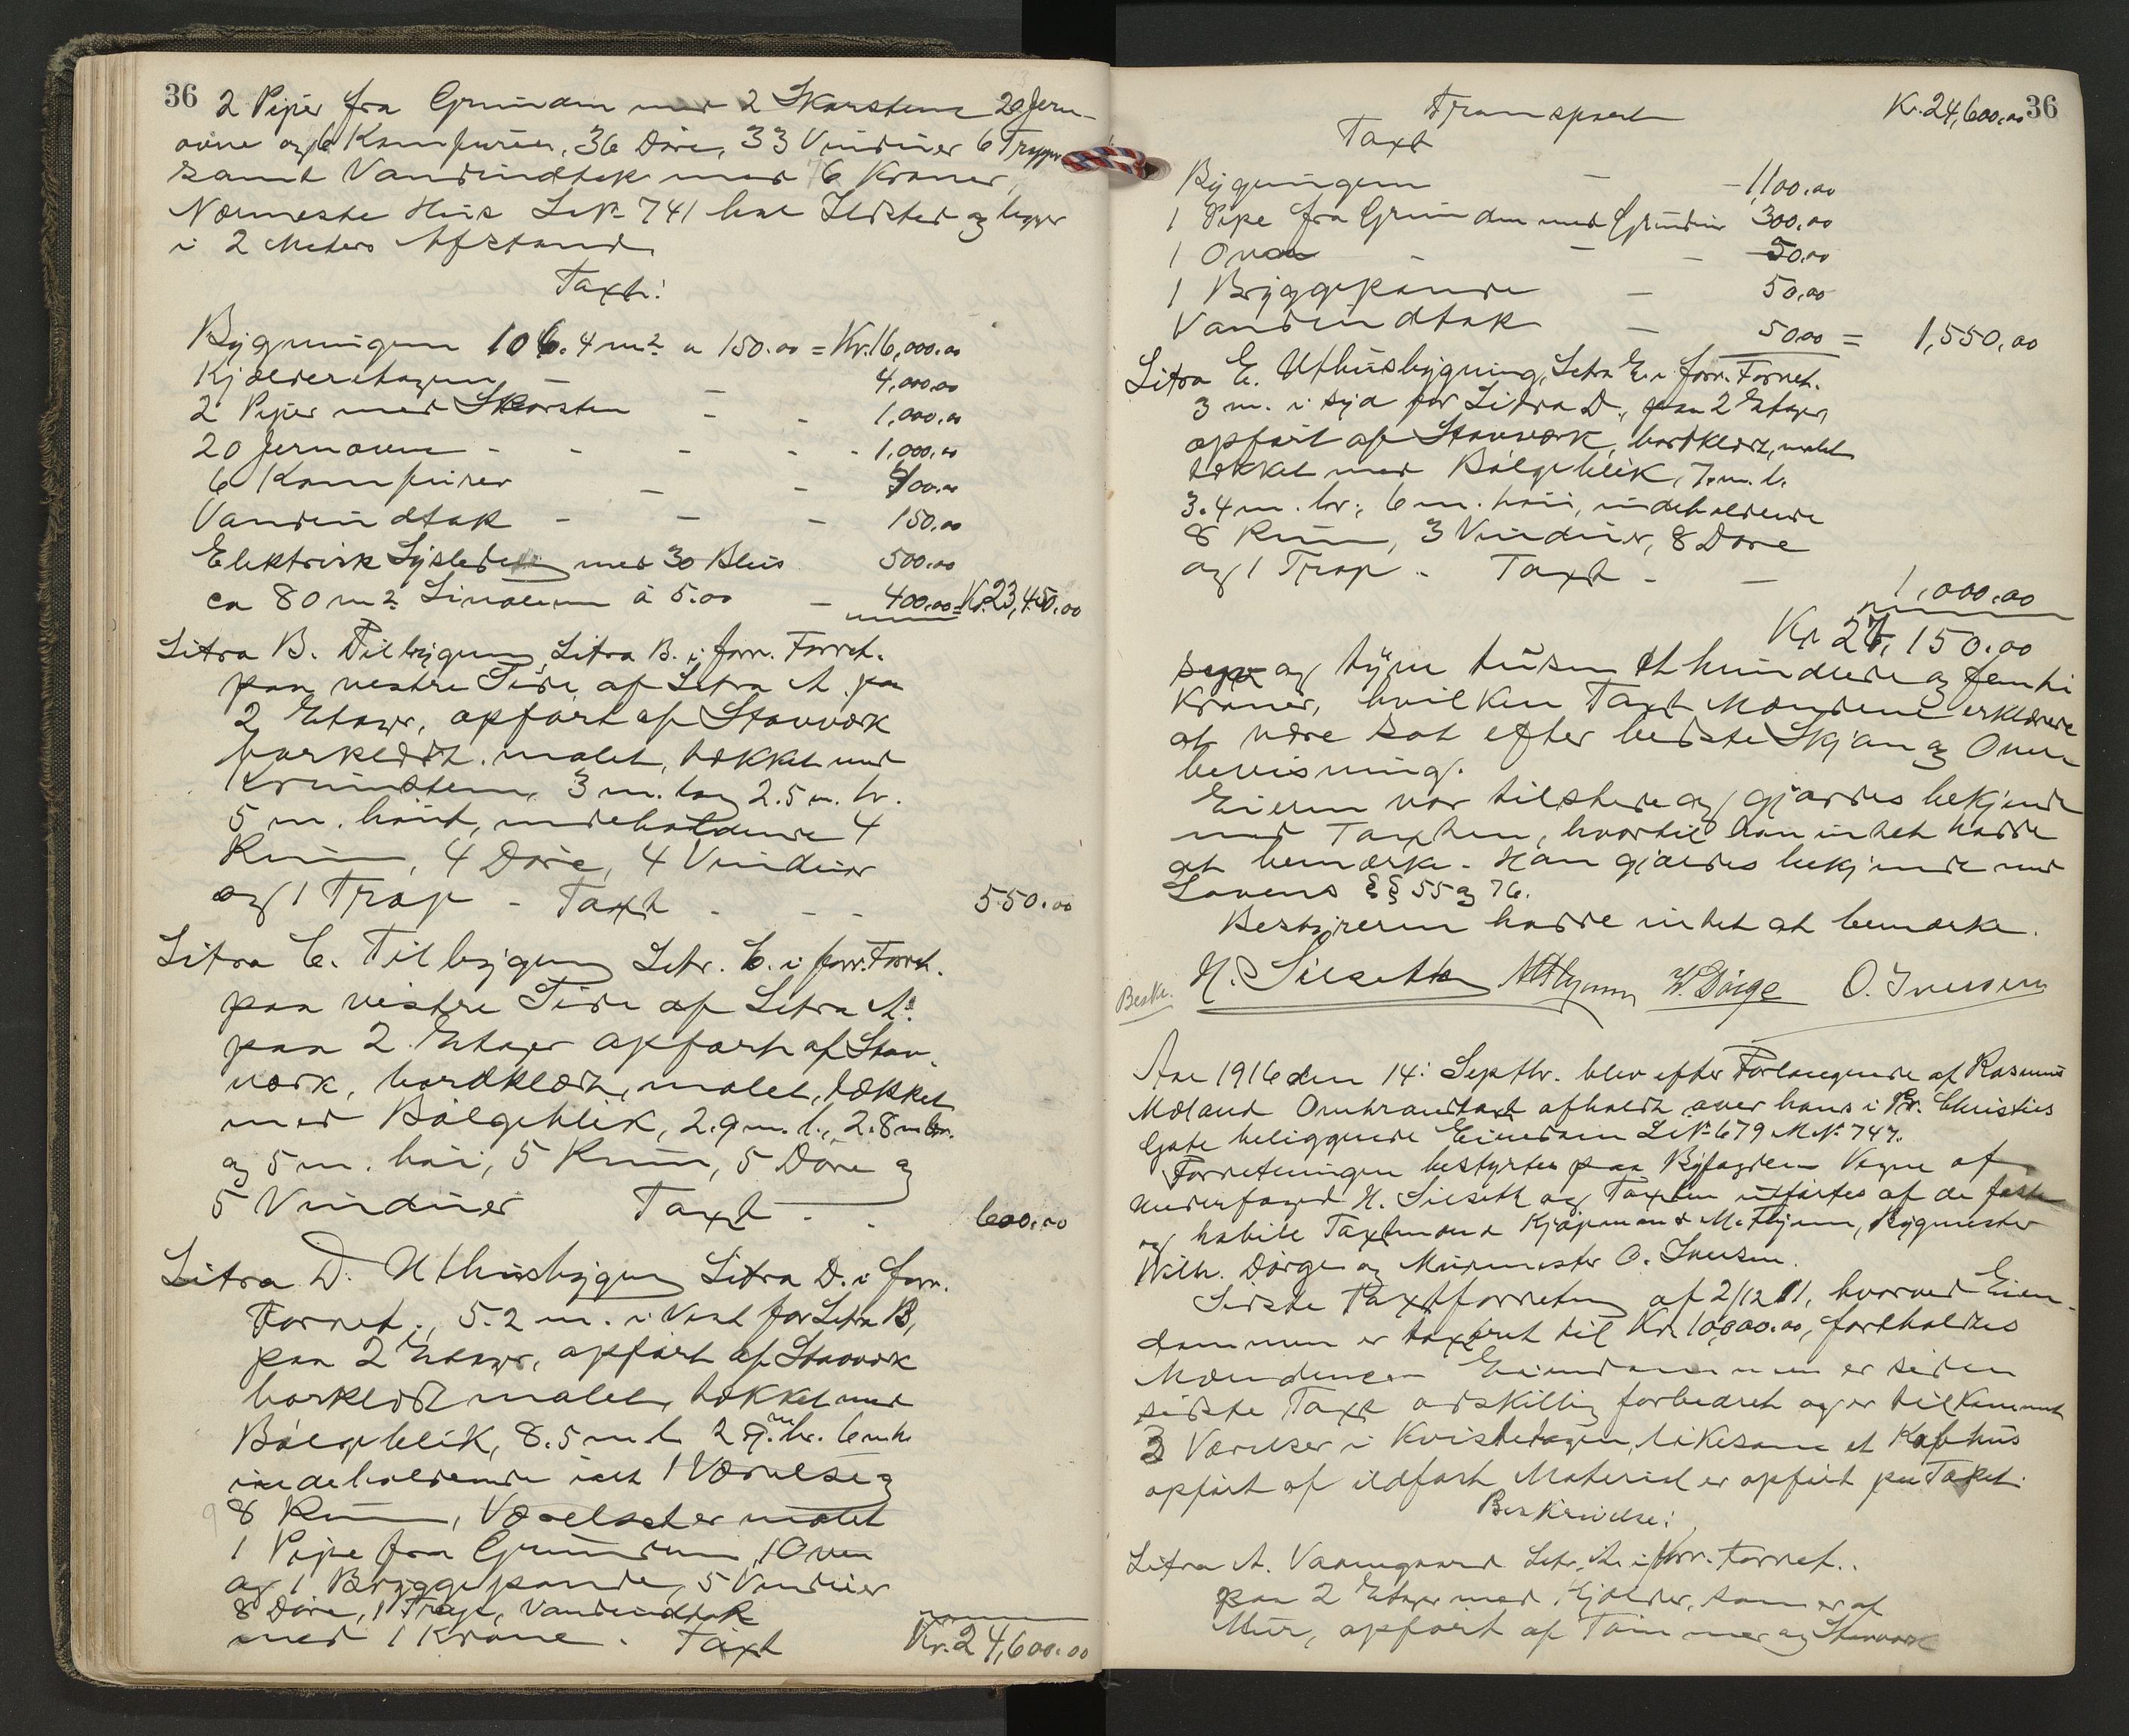 36
2 Piper fra Grunden med 2 Skorstene 20 Jern-
ovne og 6 Komfurer, 36 Döre, 33 Vinduer 6 Trapper
samt Vandindtak med 6 Kraner,
Nærmeste Hus L.Nr. 741 har Ildsted og ligger
i 2 Meters Afstand.
Taxt:
Bygningen 106.4 m² a 150.00 = Kr. 16,000.00
Kjælderetagen - - 4,000.00
2 Piper med Skorsten - - 1,000.00
20 Jernovne - - - - 1,000.00
6 Komfurer - - 400.00
Vandindtak - - - 150.00
Elektrisk Lysledning med 30 Blus 500.00
ca 80 m² Linoleum à 5.00 - 400.00 = Kr. 23,450.00
Litra B. Tilbygning, Litra B. i forr. Forret.
paa vestre Side af Litra A. paa
2 Etager, opfört af Stavværk
bordklædt, malet, tækket med
Krumsten, 3 m. lang 2.5 m. br.
5 m. höit, indeholdende 4
Rum, 4 Döre, 4 Vinduer
og 1 Trap - Taxt - - - 550.00
Litra C. Tilbygning Litr. C. i forr. Forret.
paa vestre Side af Litra A.
paa 2 Etager opfört af Stav-
værk, bordklædt, malet, tækket
med Bölgeblik, 2.9 m. l., 2.8 m br.
og 5 m. höi, 5 Rum, 5 Döre og
5 Vinduer Taxt - - 600.00
Litra D. Uthusbygning Litra D. i forr.
Forret., 5.2 m. i Vest for Litra B,
paa 2 Etager, opfört af Stavværk
bordklædt malet, tækket med
Bölgeblik, 8.5 m l. 2.9 m. br. 6 m h.
indeholdende 1 Værelse og
8 Rum, Værelset er malet
1 Pipe fra Grunden, 1 Oven
og 1 Bryggepande, 5 Vinduer
8 Döre, 1 Trap, Vandindtak
med 1 Krane. Taxt Kr. 24,600.00
Transport Kr. 24,600.00 36
Taxt
Bygningen - - 1,100.00
1 Pipe fra Grunden med 300.00
1 Oven - - - 50.00
1 Bryggepande - 50.00
Vandindtak - 50.00 = 1,550.00
Litra E. Uthusbygning, Litra E. i forr. Forret.
3 m. i Syd for Litra D., paa 2 Etager,
opfört af Stavværk, bordklædt, malet
tækket med Bölgeblik, 7. m. l.
3.4 m. br., 6 m. höi, indeholdende
8 Rum, 3 Vinduer, 8 Döre
og 1 Trap - Taxt - - 1,000.00
Kr. 27,150.00
syv og tyve tusen et hundrede og femti
Kroner, hvilken Taxt Mændene erklærede
at være sat efter bedste Skjön og Over-
bevisning.
Eieren var tilstede og gjordes bekjendt
med Taxten, hvortil han intet havde
at bemærke. Han gjordes bekjendt med
Lovens §§ 55 og 76.
Bestyreren havde intet at bemærke.
N. Silseth W. Dörge O. Iversen
Aar 1916 den 14. Septbr. blev efter Forlangende af Rasmus
Mæland Ombrandtaxt afholdt over hans i Pr. Christies
Gate beliggende Eiendom L.Nr. 679 M.Nr. 747.
Forretningen bestyrtes paa Byfogdens Vegne af
Underfoged N. Silseth og Taxten utförtes af de faste
og habile Taxtmænd Kjöpmand M. Flynn, Bygmester
Wilh. Dörge og Murmester O. Iversen.
Sidste Taxtforretning af 2/12 11, hvorved Eien-
dommen er taxeret til Kr. 10,000.00, foreholdtes
Mændene. Eiendommen er siden
sidste Taxt adskillig forbedret og er tilkommet
3 Værelser i Kvistetagen, likesom et
opfört af ildfast Material er opfört paa
Beskrivelse:
Litra A. Vaaningshus Litr. A. i forr. Forret..
paa 2 Etager med Kjælder, som er af
Mur, opfört af Tömmer og Stavværk